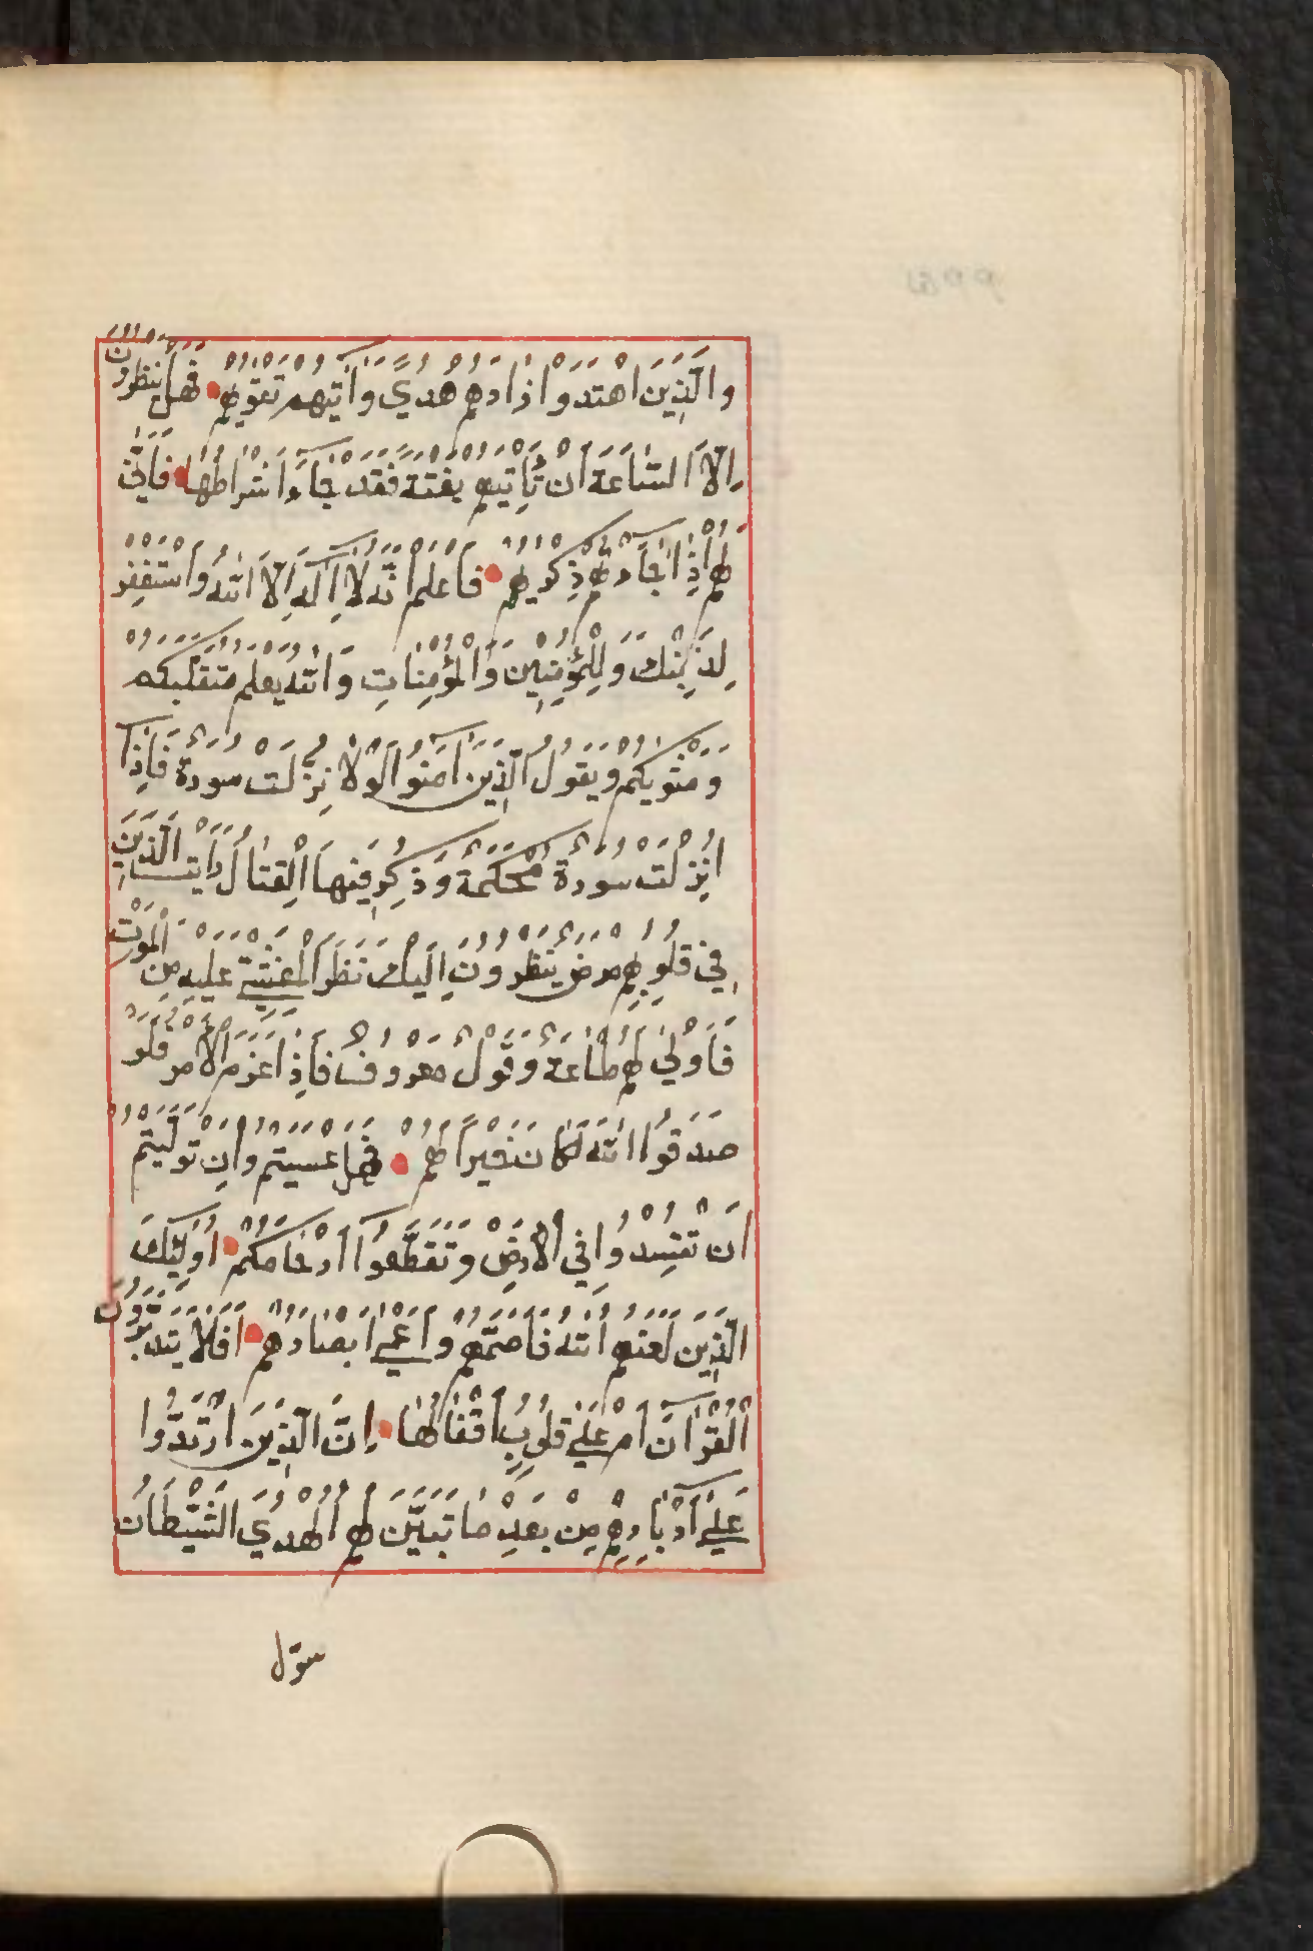 والَّذِينَ اهْتَدَوْا زَادَهُمْ هُدًي وَاٰتٰيهُمْ تَقْوٰيهُمْ فَهَلْ يَنْظُرُونَ
اِلَّا السَّاعَةَ اَنْ تَأْتِيَهُمْ بَغْتَةً فَقَدْ جَآءَ اَشْرَاطُهَا فَاَنّٰي
لَهُمْ اِذَا جَآءَتْهُمْ ذِكْرٰيهُمْ فَاعْلَمْ اَنَّهُ لَا اِلٰهَ اِلَّا اللّٰهُ وَاسْتَغْفِرْ
لِذَنْبِكَ وَلِلْمُؤْمِنِينَ وَالْمُؤْمِنَاتِ وَاللّٰهُ يَعْلَمُ مُتَقَلَّبَكُمْ
وَمَثْوٰيكُمْ وَيَقُولُ الَّذِينَ اٰمَنُوا لَوْلَا نُزِّلَتْ سُورَةٌ فَاِذَا
اُنْزِلَتْ سُورَةٌ مُحْكَمَةٌ وَذُكِرَ فِيهَا الْقِتَالُ رَاَيْتَ الَّذِينَ
فِي قُلُوبِهِمْ مَرَضٌ يَنْظُرُونَ اِلَيْكَ نَظَرَ الْمَغْشِيِّ عَلَيْهِ مِنَ الْمَوْتِ
فَاَوْلٰي لَهُمْ طَاعَةٌ وَقَوْلٌ مَعْرُوفٌ فَاِذَا عَزَمَ الْاَمْرُ فَلَوْ
صَدَقُوا اللّٰهَ لَكَانَ خَيْرًا لَهُمْ فَهَلْ عَسَيْتُمْ وَاِنْ تَوَلَّيْتُمْ
اَنْ تُفْسِدُوا فِي الْاَرْضِ وَتُقَطِّعُوا اَرْحَامَكُمْ اُولٰئِكَ
الَّذِينَ لَعَنَهُمُ اللّٰهُ فَاَصَمَّهُمْ وَاَعْمٰي اَبْصَارَهُمْ اَفَلَا يَتَدَبَّرُونَ
الْقُرْاٰنَ اَمْ عَلٰي قُلُوبٍ اَقْفَالُهَا اِنَّ الَّذِينَ ارْتَدُّوا
عَلٰي اَدْبَارِهِمْ مِنْ بَعْدِ مَا تَبَيَّنَ لَهُمُ الْهُدَي الشَّيْطَانُ
سوّل